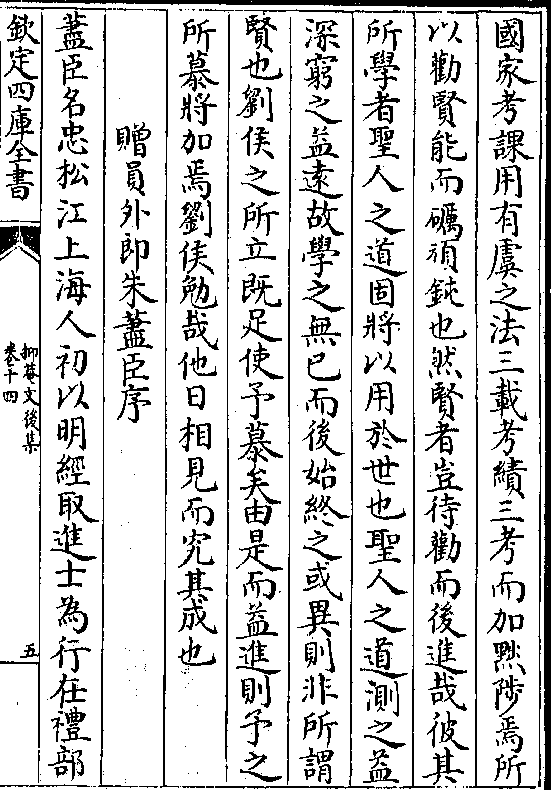 國家考課用有虞之法三載考績三考而加黜陟焉所
以勸賢能而礪頑鈍也然賢者豈待勸而後進哉彼其
所學者聖人之道固將以用於世也聖人之道測之益
深窮之益遠故學之無已而後始終之或異則非所謂
賢也劉侯之所立既足使予慕矣由是而益進則予之
所慕將加焉劉侯勉哉他日相見而究其成也
贈員外郎朱藎臣序
藎臣名忠松江上海人初以明經取進士為行在禮部
欽定四庫全書
抑菴文後集
卷十四
五